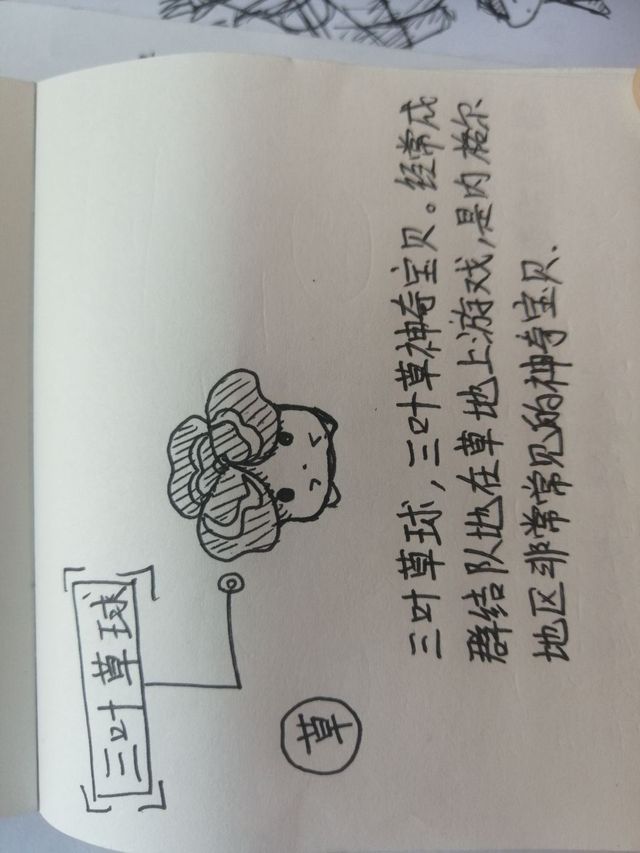 三叶草球
草
三叶草球，三叶草神奇宝贝。经常成
群结队地在草地上游戏，是内格尔
地区非常常见的神奇宝贝.